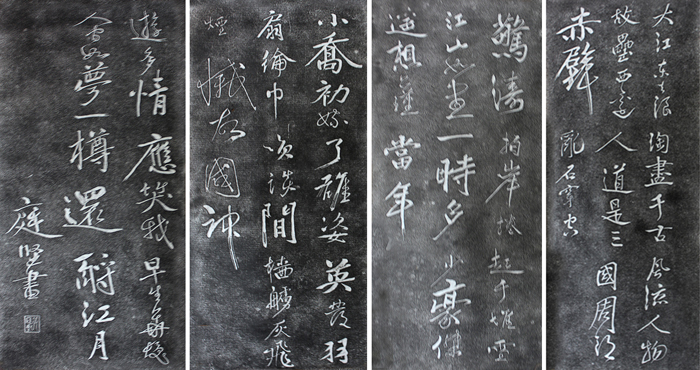 大江東去浪淘盡千古風流人物
故壘西邊人道是三國周郎
赤壁亂石穿空
驚濤拍岸捲起千堆雪
江山如畫一時多少豪傑
遙想瑾當年
小喬初嫁了雄姿英發羽
扇綸巾笑談間檣艣灰飛
煙滅故國神
遊多情應笑我早生華髮
人如夢一樽還酹江月
庭堅書